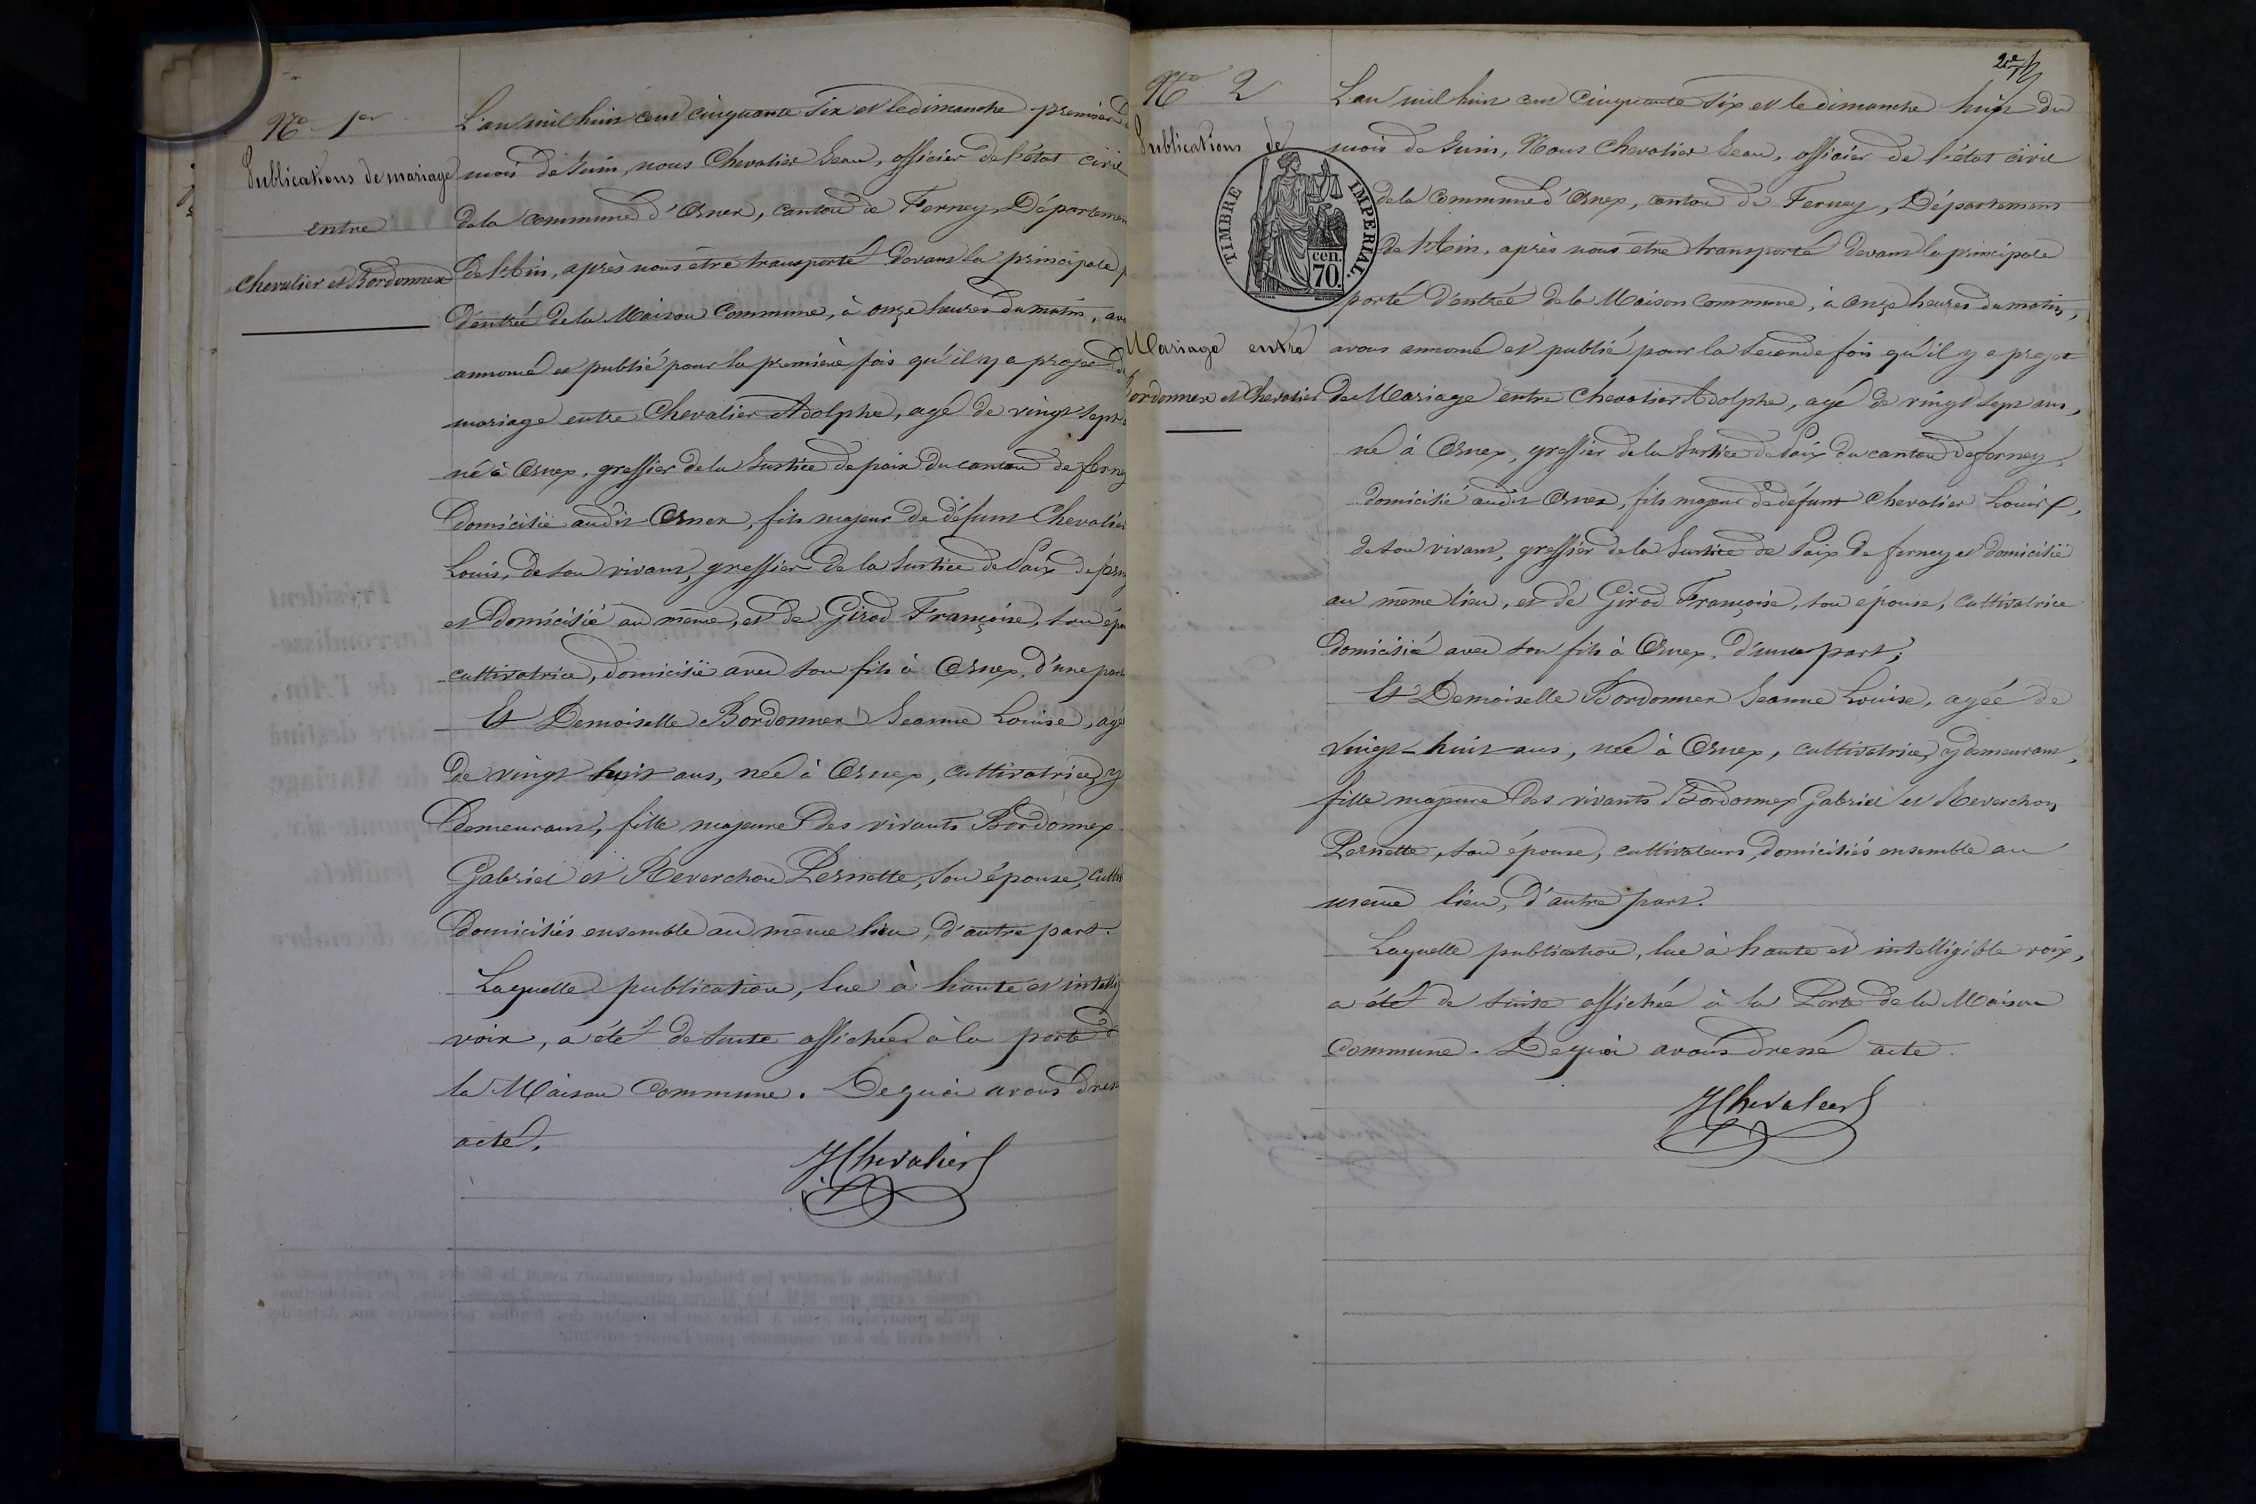 No 1er
Publications de mariage
entre
Chevalier et Bordonnex
L'an mil huit cent cinquante six et le dimanche premier
mois de Juin, nous Chevalier Jean, officier de l'état civil
de la commune d'Ornex, canton de Ferney, Département
de l'Ain, après nous être transporté devant la principale
d'entrée de la Maison Commune, à onze heures du matin,
annoncé et publié pour la première fois qu'il y a projet
mariage entre Chevalier Adolphe, agé de vingt sept
né à Ornex, greffier de la Justice de paix du canton de ferney
Domicilié audit Ornex, fils majeur de défunt Chevalier
Louis, de son vivant, greffier de la Justice de Paix de
et Domicilié au même, et de Girod Françoise, son
cultivatrice, domicilié avec son fils à Ornex, d'une part
Et Demoiselle Bordonnex Jeanne Louise,
De vingt huit ans, née à Ornex, cultivatrice, y
Demeurant, fille majeure des vivants Bordonnex
Gabriel et Reverchon Pernette, son épouse,
Domiciliés ensemble au même lieu, d'autre part.
Laquelle publication, lue à haute et
voix, a été de suite affichée à la porte de
la Maison Commune. De quoi avons
acte.
JChevalier
2e
No 2
Publications de
Mariage entre
Bordonnex et Chevalier
TIMBRE IMPERIAL.
cen.
70.
L'an mil huit cent cinquante six et le dimanche huit du
mois de Juin, Nous Chevalier Jean, officier de l'état civil
de la Commune d'Ornex, canton de Ferney, Département
de l'Ain, après nous être transporté devant la principale
porte d'entrée de la Maison Commune, à onze heures du matin,
avons annoncé et publié pour la seconde fois qu'il y a projet
de Mariage entre Chevalier Adolphe, agé de vingt sept ans,
né à Ornex, greffier de la Justice de Paix du canton de ferney,
domicilié audit Ornex, fils majeur de défunt Chevalier Louis,
de son vivant, greffier de la Justice de Paix de ferney et domicilié
au même lieu, et de Girod Françoise, son épouse, Cultivatrice
Domicilié avec son fils à Ornex, d'une part;
Et Demoiselle Bordonnex Jeanne Louise, agée de
vingt-huit ans, née à Ornex, cultivatrice, y demeurant,
fille majeure des vivants Bordonnex Gabriel et Reverchon
Pernette, son épouse, cultivateurs, domiciliés ensemble au
même lieu, d'autre part.
Laquelle publication, lue à haute et intelligible voix,
a été de suite affichée à la Porte de la Maison
Commune. De quoi avons dressé acte.
JChevalier